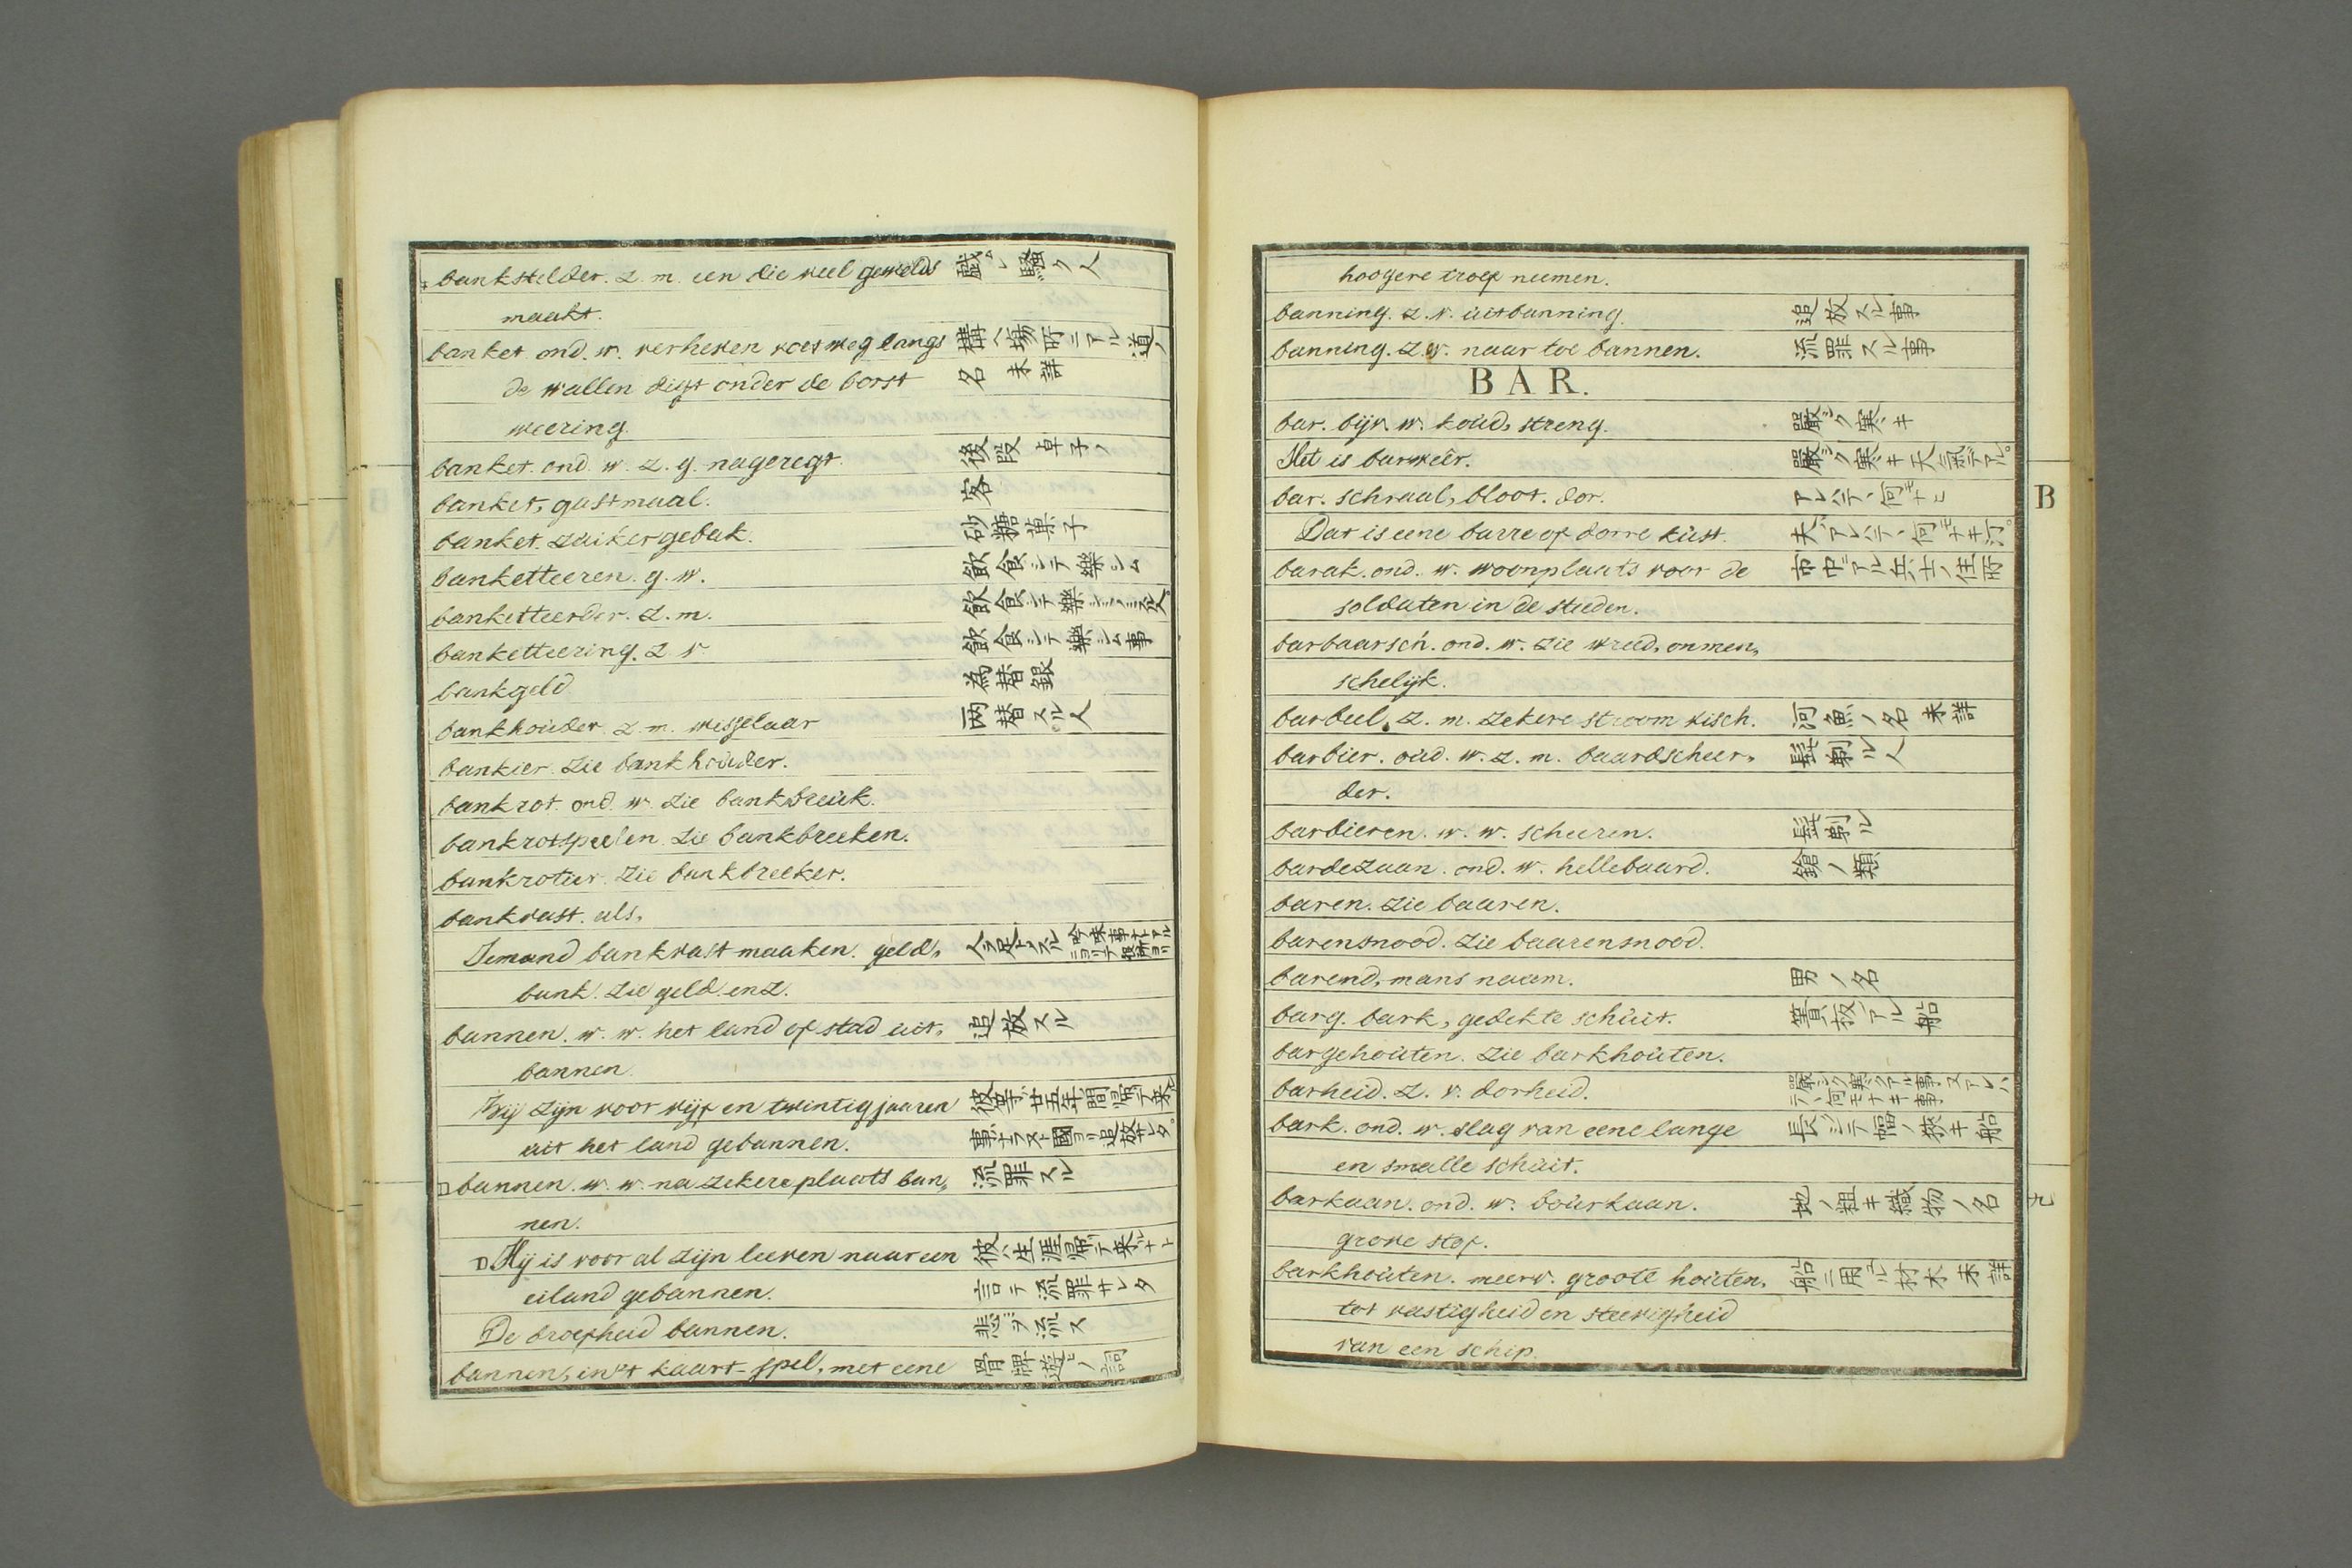 bankstelder. z. m. een die veel gewelds 戯レ騒ク人
maakt.
banket ond. w. verheven voetweg langs 構ヘ場所ニアル道ノ
de wallen digt onder de borst 名 未詳
weering.
banket. ond. w. z. g. nageregt. 後段 卓子ノ
banket, gastmaal. 客
banket. zuikergebak. 砂糖菓子
banketteeren. g. w. 飲食シテ樂シム
banketteerder. z. m. 飲食シテ樂シミヲスル人
banketteering. z. v. 飲食シテ樂シム事
bankgeld 為替銀
bankhoúder. z. m. wisselaar 両替スル人
bankier. zie bankhoúder.
bankrot. ond. w. zie bankbreúk.
bankrotspeelen. zie bankbreeken.
bankrotier. zie bankbreeker.
bankvast. als,
Iemand bankvast maaken. geld,
bank. zie geld. enz.
bannen. w. w. het land of stad uit, 追放スル
bannen.
Zij zijn voor vijf en twintig jaaren 彼等ガ廿五年間帰テ来ル
úit het land gebannen. 事ナラズト國ヨリ追放サレタ。
bannen. w. w. na zekere plaats ban, 流罪スル
nen.
Hij is voor al zijn leeven naar een 彼ハ生涯帰テ来ルナト
eiland gebannen. 言テ流罪サレタ
De droefheid bannen. 悲ヲ流ス
bannen, in 't kaart-spel, met eene 骨牌遊ビノ詞
hoogere troef neemen.
banning. z. v. úitbanning. 追放スル事
banning. z. v. naar toe bannen. 流罪スル事
BAR.
bar. bijv. w. koúd, streng. 嚴シク寒キ
Het is bar weêr. 嚴シク寒キ天氣デアル。
bar. schraal, bloot. dor. アレハテヽ何モナヒ
Dat is eene barre of dorre kúst. 夫ハアレハテヽ何モナキ河。
B
barak. ond. w. woonplaats voor de 市中ニアル兵士ノ住所
soldaten in de steeden.
barbaarsch. ond. w. zie wreed, onmen,
schelijk.
barbeel. z. m. zekere stroom visch. 河魚ノ名 未詳
barbier. oúd. w. z. m. baardscheer, 髭剃ル人
der.
barbieren. w. w. scheeren. 髭剃ル
bardezaan. ond. w. hellebaard. 鎗ノ類
baren. zie baaren.
barensnood. zie baarensnood.
barend, mans naam. 男ノ名
barg. bark, gedekte schúit. 簀板アル船
bargehoúten. zie barkhoúten.
barheid. z. v. dorheid. 嚴シク寒クアル事又アレハテヽ何モナキ事
bark. ond. w. slag van eene lange 長シテ幅ノ狹キ船
en smalle schúit.
barkaan. ond. w. boúrkaan. 地ノ粗キ織物ノ名
grove stof.
barkhoúten. meerv. groote hoúten, 船ニ用ユル材木 未詳
tot vastigheid en steevigheid
van een schip.